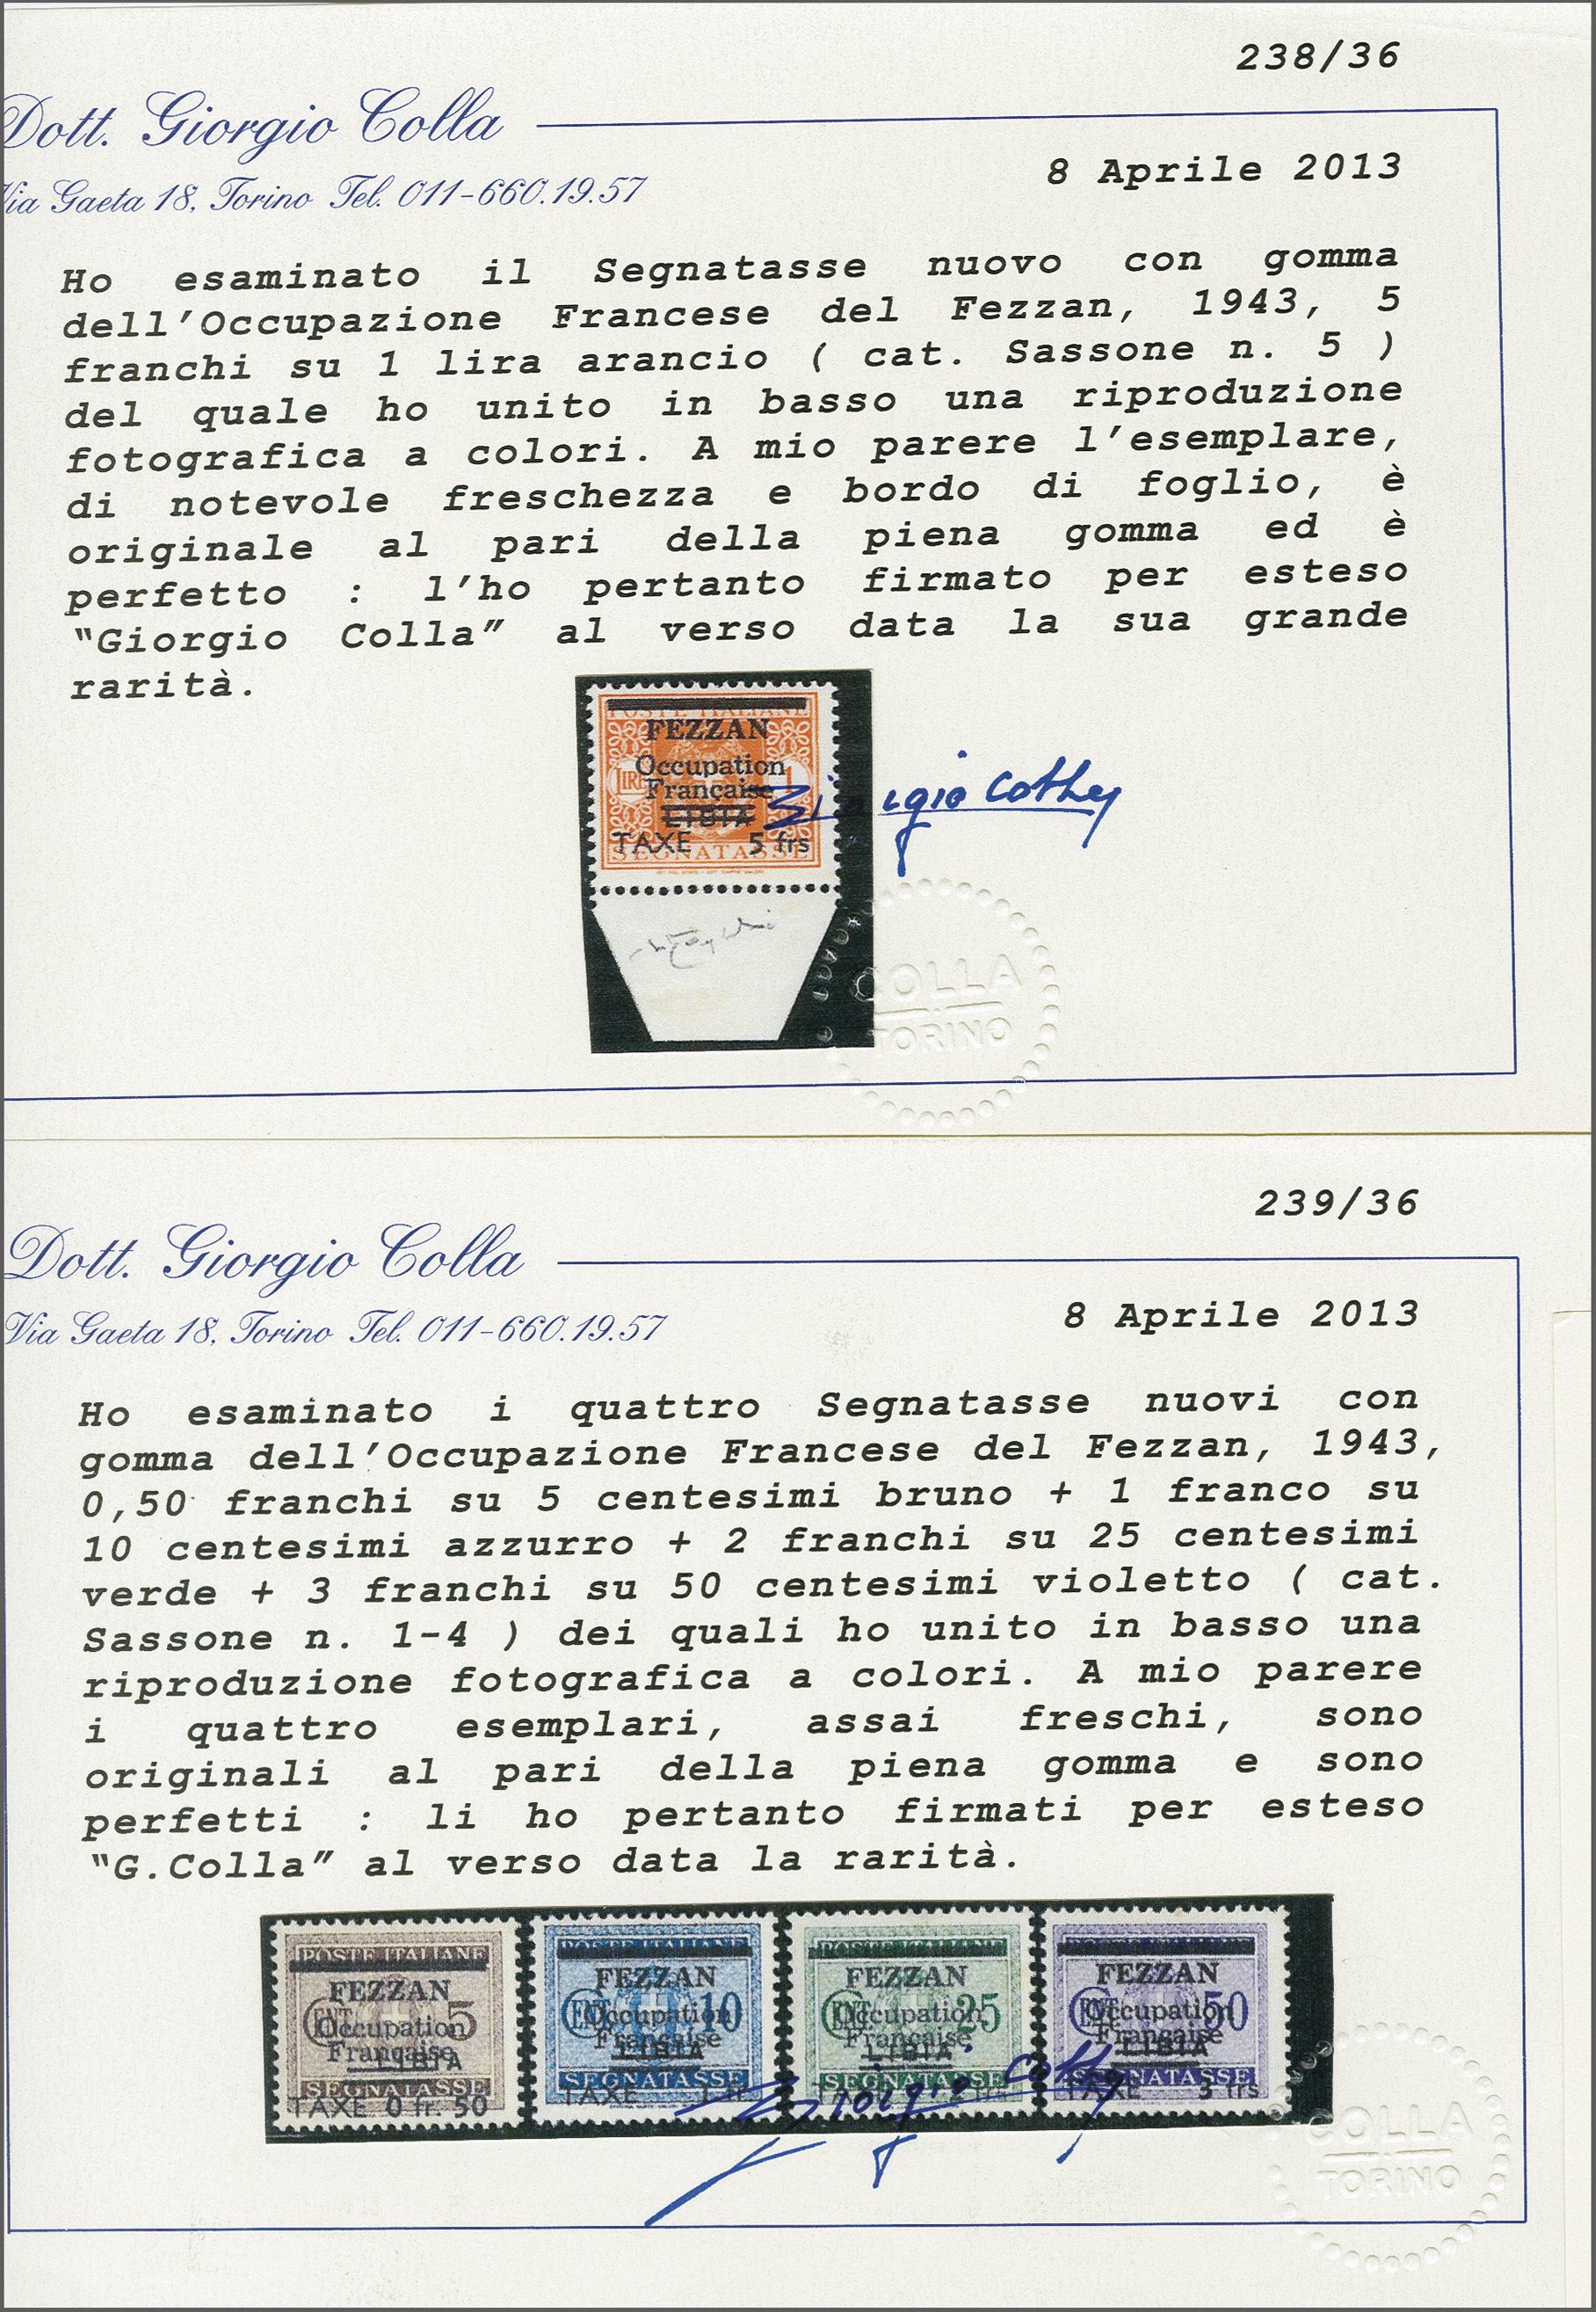 238/36
Dott. Giorgio Colla
Via Gaeta 18, Torino Tel. 011-660.19.57
8 Aprile 2013
Ho esaminato il Segnatasse nuovo con gomma
dell'Occupazione Francese del Fezzan, 1943, 5
franchi su 1 lira arancio ( cat. Sassone n. 5 )
del quale ho unito in basso una riproduzione
fotografica a colori. A mio parere l'esemplare,
di notevole freschezza e bordo di foglio, è
originale al pari della piena gomma ed è
perfetto : l'ho pertanto firmato per esteso
"Giorgio Colla" al verso data la sua grande
rarità.
POSTE ITALIANE
FEZZAN
Occupation
Française
LIBIA
TAXE 5 frs
SEGNATASSE
Giorgio Colla
COLLA
TORINO
239/36
Dott. Giorgio Colla
Via Gaeta 18, Torino Tel. 011-660.19.57
8 Aprile 2013
Ho esaminato i quattro Segnatasse nuovi con
gomma dell'Occupazione Francese del Fezzan, 1943,
0,50 franchi su 5 centesimi bruno + 1 franco su
10 centesimi azzurro + 2 franchi su 25 centesimi
verde + 3 franchi su 50 centesimi violetto ( cat.
Sassone n. 1-4 ) dei quali ho unito in basso una
riproduzione fotografica a colori. A mio parere
i quattro esemplari, assai freschi, sono
originali al pari della piena gomma e sono
perfetti : li ho pertanto firmati per esteso
"G.Colla" al verso data la rarità.
POSTE ITALIANE
FEZZAN
CENT. 5
Occupation
Française
LIBIA
SEGNATASSE
TAXE 0 fr. 50
POSTE ITALIANE
FEZZAN
CENT. 10
Occupation
Française
LIBIA
SEGNATASSE
TAXE 1 fr
POSTE ITALIANE
FEZZAN
CENT. 25
Occupation
Française
LIBIA
SEGNATASSE
FEZZAN
CENT. 50
Occupation
Française
LIBIA
SEGNATASSE
TAXE 3 frs
Giorgio Colla
COLLA
TORINO